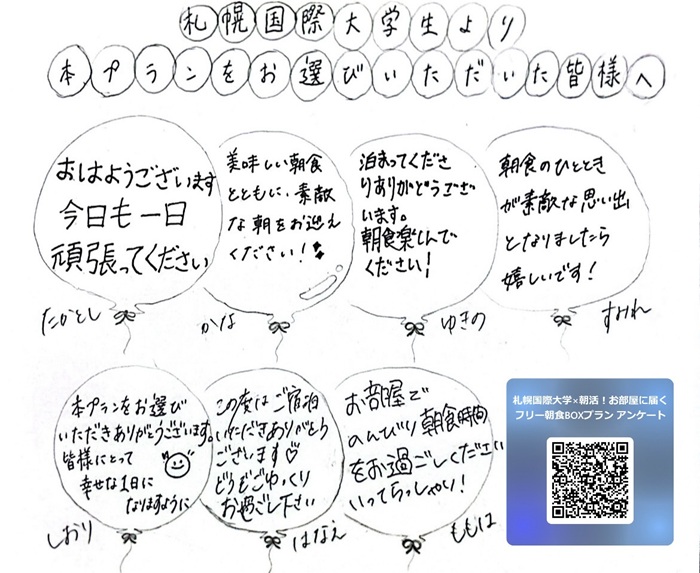 札幌国際大学生より
本プランをお選びいただいた皆様へ
おはようございます
今日も一日
頑張ってください
たかとし
美味しい朝食
とともに、素敵
な朝をお迎え
ください！
かな
泊まってくださ
りありがとうござ
います。
朝食楽しんで
ください！
ゆきの
朝食のひととき
が素敵な思い出
となりましたら
嬉しいです！
すみれ
本プランをお選び
いただきありがとうございます。
皆様にとって
幸せな1日に
なりますように
しおり
この度はご宿泊
いただきありがとう
ございます♡
どうぞごゆっくり
お過ごし下さい
はなえ
お部屋で
のんびり朝食時間
をお過ごしください
いってらっしゃい！
ももは
札幌国際大学×朝活！お部屋に届く
フリー朝食BOXプラン アンケート